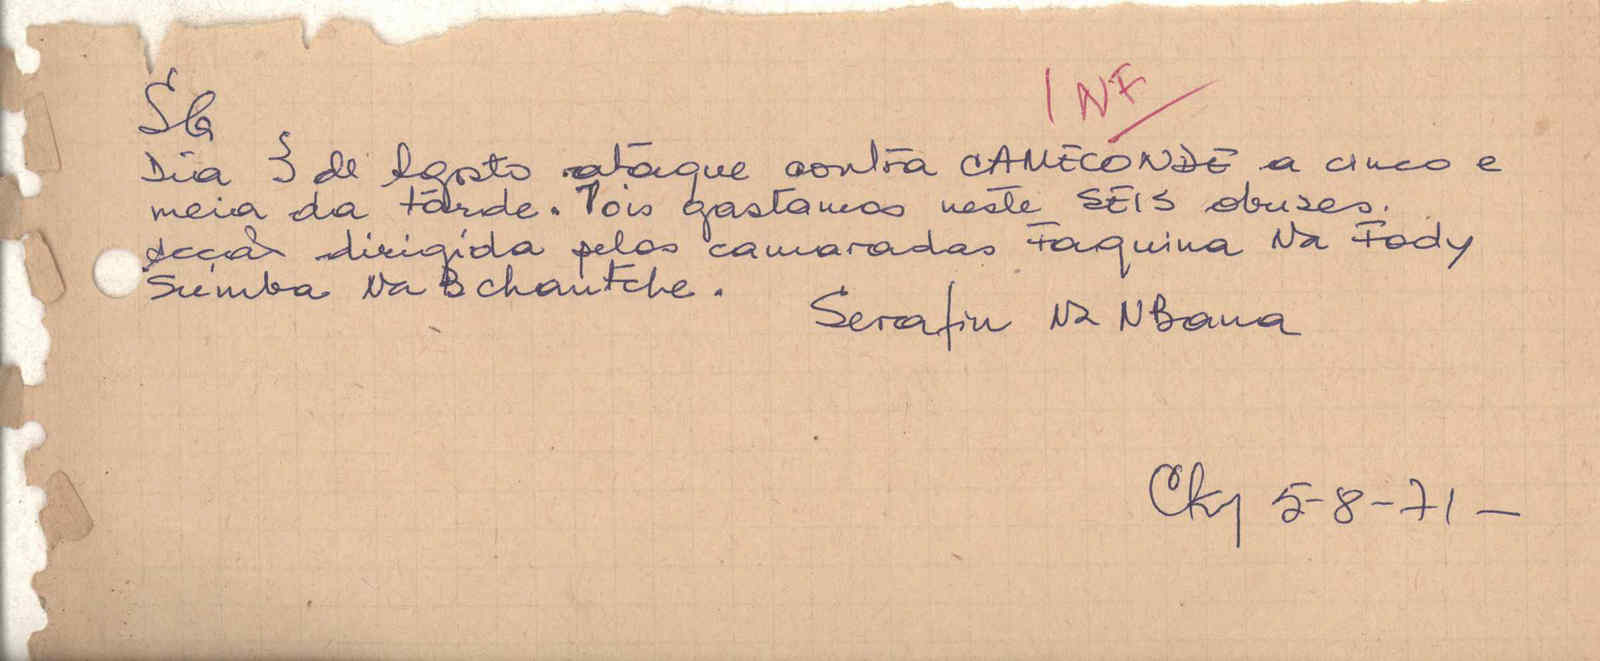 INF
SG
Dia 3 de Agosto ataque contra CAMECONDE a cinco e
meia da tarde. Pois gastamos neste SEIS obuses.
Acção dirigida pelos camaradas Faquina Na Fody
Sumba Na Bchantche.
Serafin Na NBana
Cky 5-8-71-